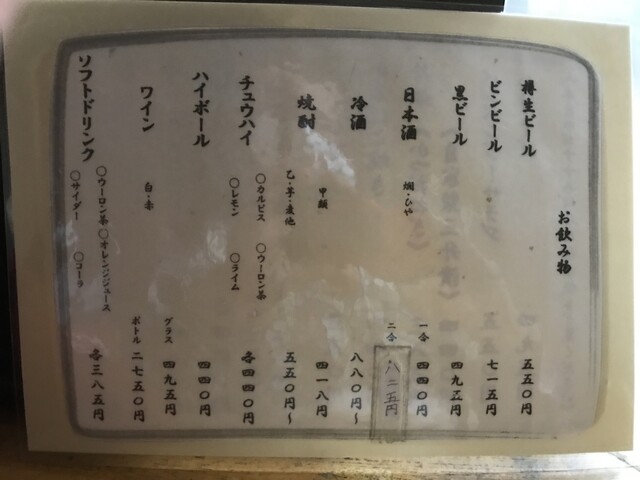 お飲み物
樽生ビール 五五〇円
ビンビール 七一五円
黒ビール 四九五円
日本酒 燗・ひや 一合 四四〇円
二合 八二五円
冷酒 八八〇円〜
焼酎 甲類 四一八円
乙・芋・麦他 五五〇円〜
チュウハイ 〇カルピス 〇ウーロン茶 各四四〇円
〇レモン 〇ライム
ハイボール 四四〇円
ワイン 白・赤 グラス 四九五円
ボトル 二七五〇円
ソフトドリンク 〇ウーロン茶 〇オレンジジュース 各三八五円
〇サイダー 〇コーラ